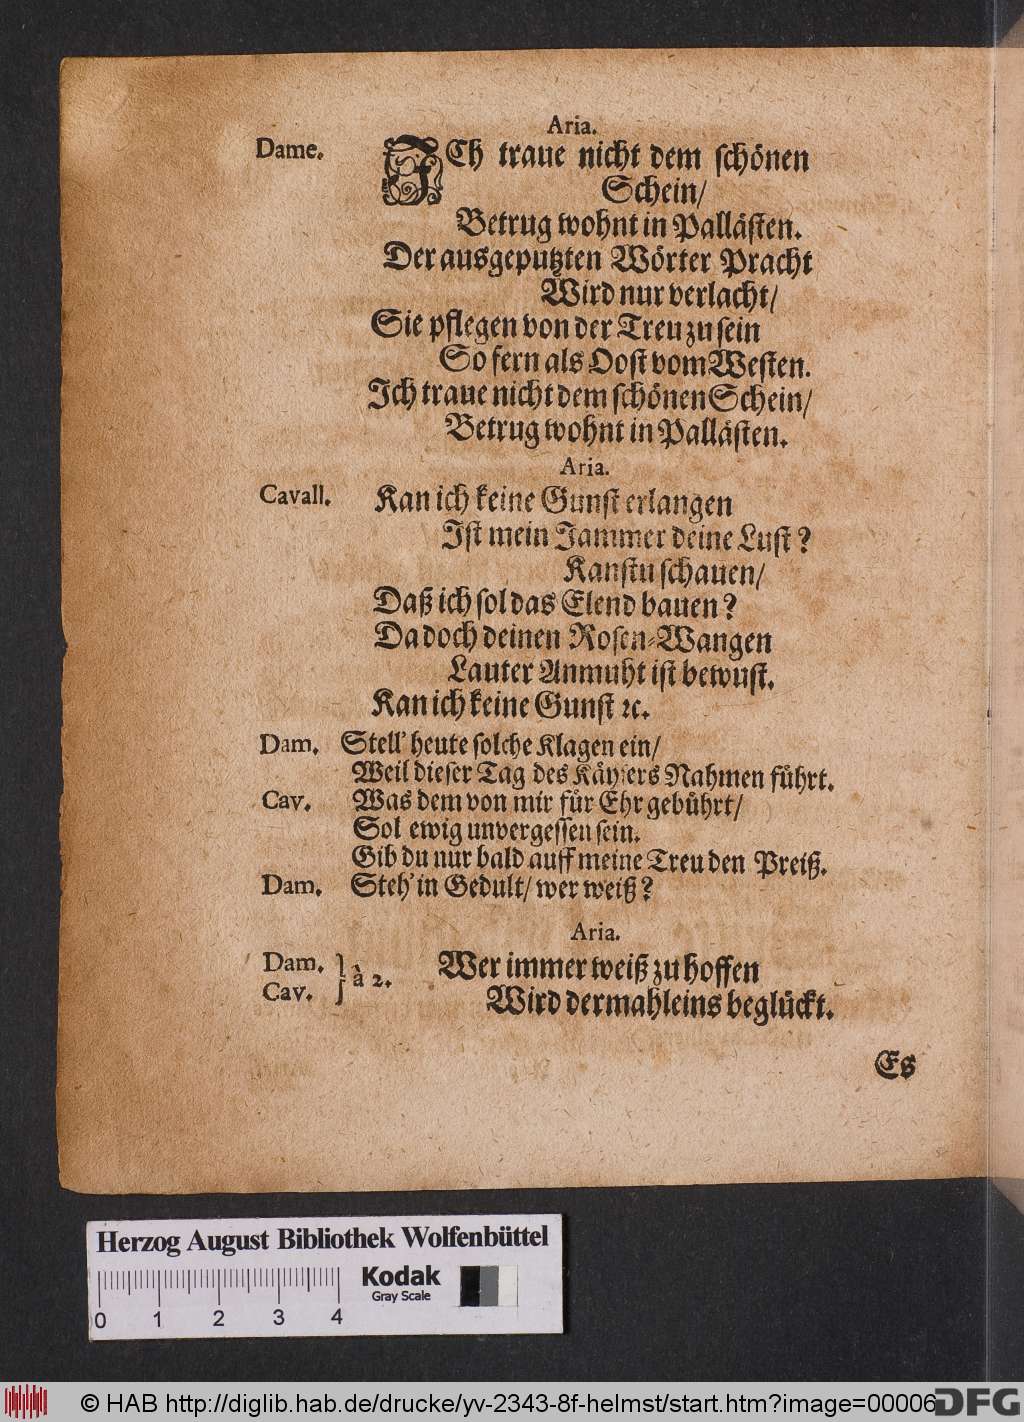 Aria.
Dame. ICh traue nicht dem schönen
Schein/
Betrug wohnt in Pallästen.
Der ausgeputzten Wörter Pracht
Wird nur verlacht/
Sie pflegen von der Treu zu sein
So fern als Oost vom Westen.
Ich traue nicht dem schönen Schein/
Betrug wohnt in Pallästen.
Aria.
Cavall. Kan ich keine Gunst erlangen
Ist mein Jammer deine Lust?
Kanstu schauen/
Daß ich sol das Elend bauen?
Da doch deinen Rosen-Wangen
Lauter Anmuht ist bewust.
Kan ich keine Gunst ꝛc.
Dam. Stell' heute solche Klagen ein/
Weil dieser Tag des Käysers Nahmen führt.
Cav. Was dem von mir für Ehr gebührt/
Sol ewig unvergessen sein.
Gib du nur bald auff meine Treu den Preiß.
Dam. Steh' in Gedult/ wer weiß?
Aria.
Dam. } à 2. Wer immer weiß zu hoffen
Cav. Wird dermahleins beglückt.
Es
Herzog August Bibliothek Wolfenbüttel
Kodak
Gray Scale
0 1 2 3 4
© HAB http://diglib.hab.de/drucke/yv-2343-8f-helmst/start.htm?image=00006
DFG